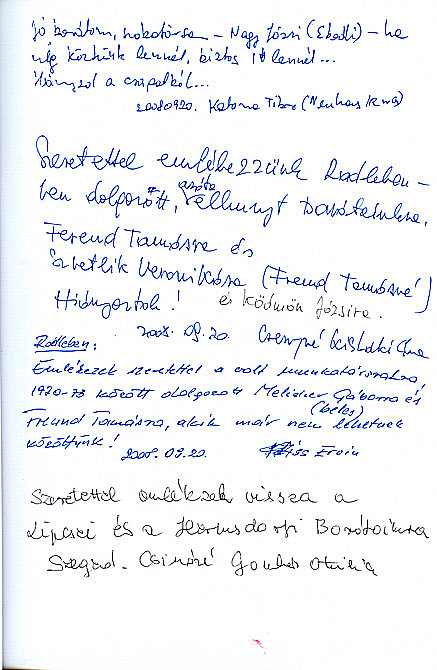 Jó barátom, sokatársa – Nagy Józsi (Ekadli) – ha
még köztünk lennél, biztos itt lennél...
Hiányzol a csapatból...
20080920. Katona Tibor (Neuhaus Rwg)
Szeretettel emlékezzünk Radleben-
ben dolgozott, azóta elhunyt barátainkra,
Ferend Tamásra és
Szvetlik Veronikára (Frend Tamásné)
Hiányoztok! és Ködmön Józsira.
2008. 09. 20.
Radleben:
Emlékezek szeretettel a volt munkatársaimra,
1970-73 között dolgozott Melicher Gáborra és
(béles)
Freund Tamásra, akik már nem lehetnek
közöttünk!
2008. 09. 20. Ervin
Szeretettel emlékszek vissza a
Lipcsei és a Hermsdorfi Barátaimra
Szeged. Csináré Otília